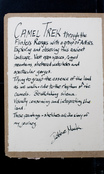 CAMEL TREK through the
Flinders Ranges with a group of Artists.
Exploring and observing this ancient
landscape. Vast open spaces, rugged
mountains, sheltered waterholes and
spectacular gorges.
Trying to grasp the essence of the land
as we undertake to the rhythm of the
camels. Sketchbooks in hand.
Visually consuming and interpreting this
land.
These paintings + sketches are the story of
my journey.